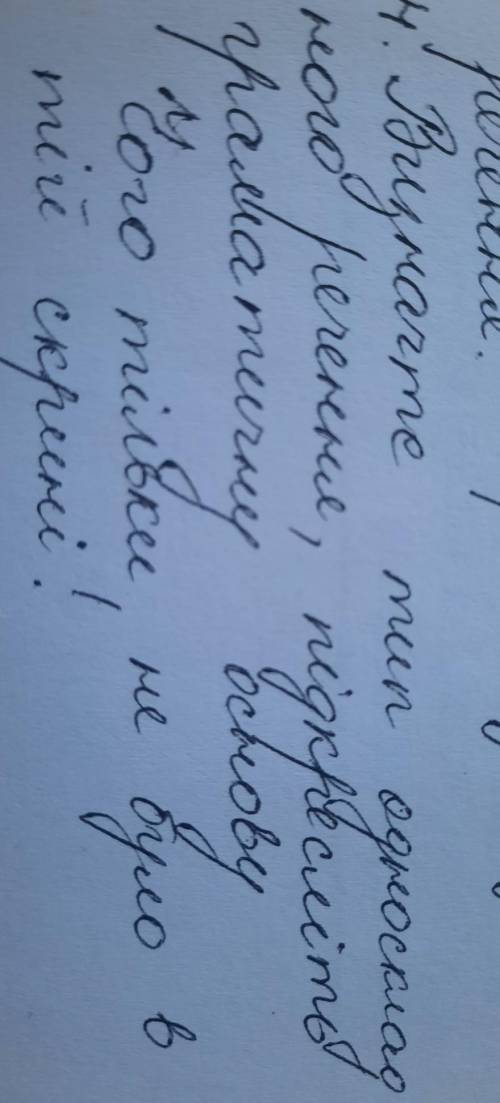 речення.
4. Визначте тип односклад
ного речення, підкресліть
граматичну основу
Чого тільки не було в
тій скрині!